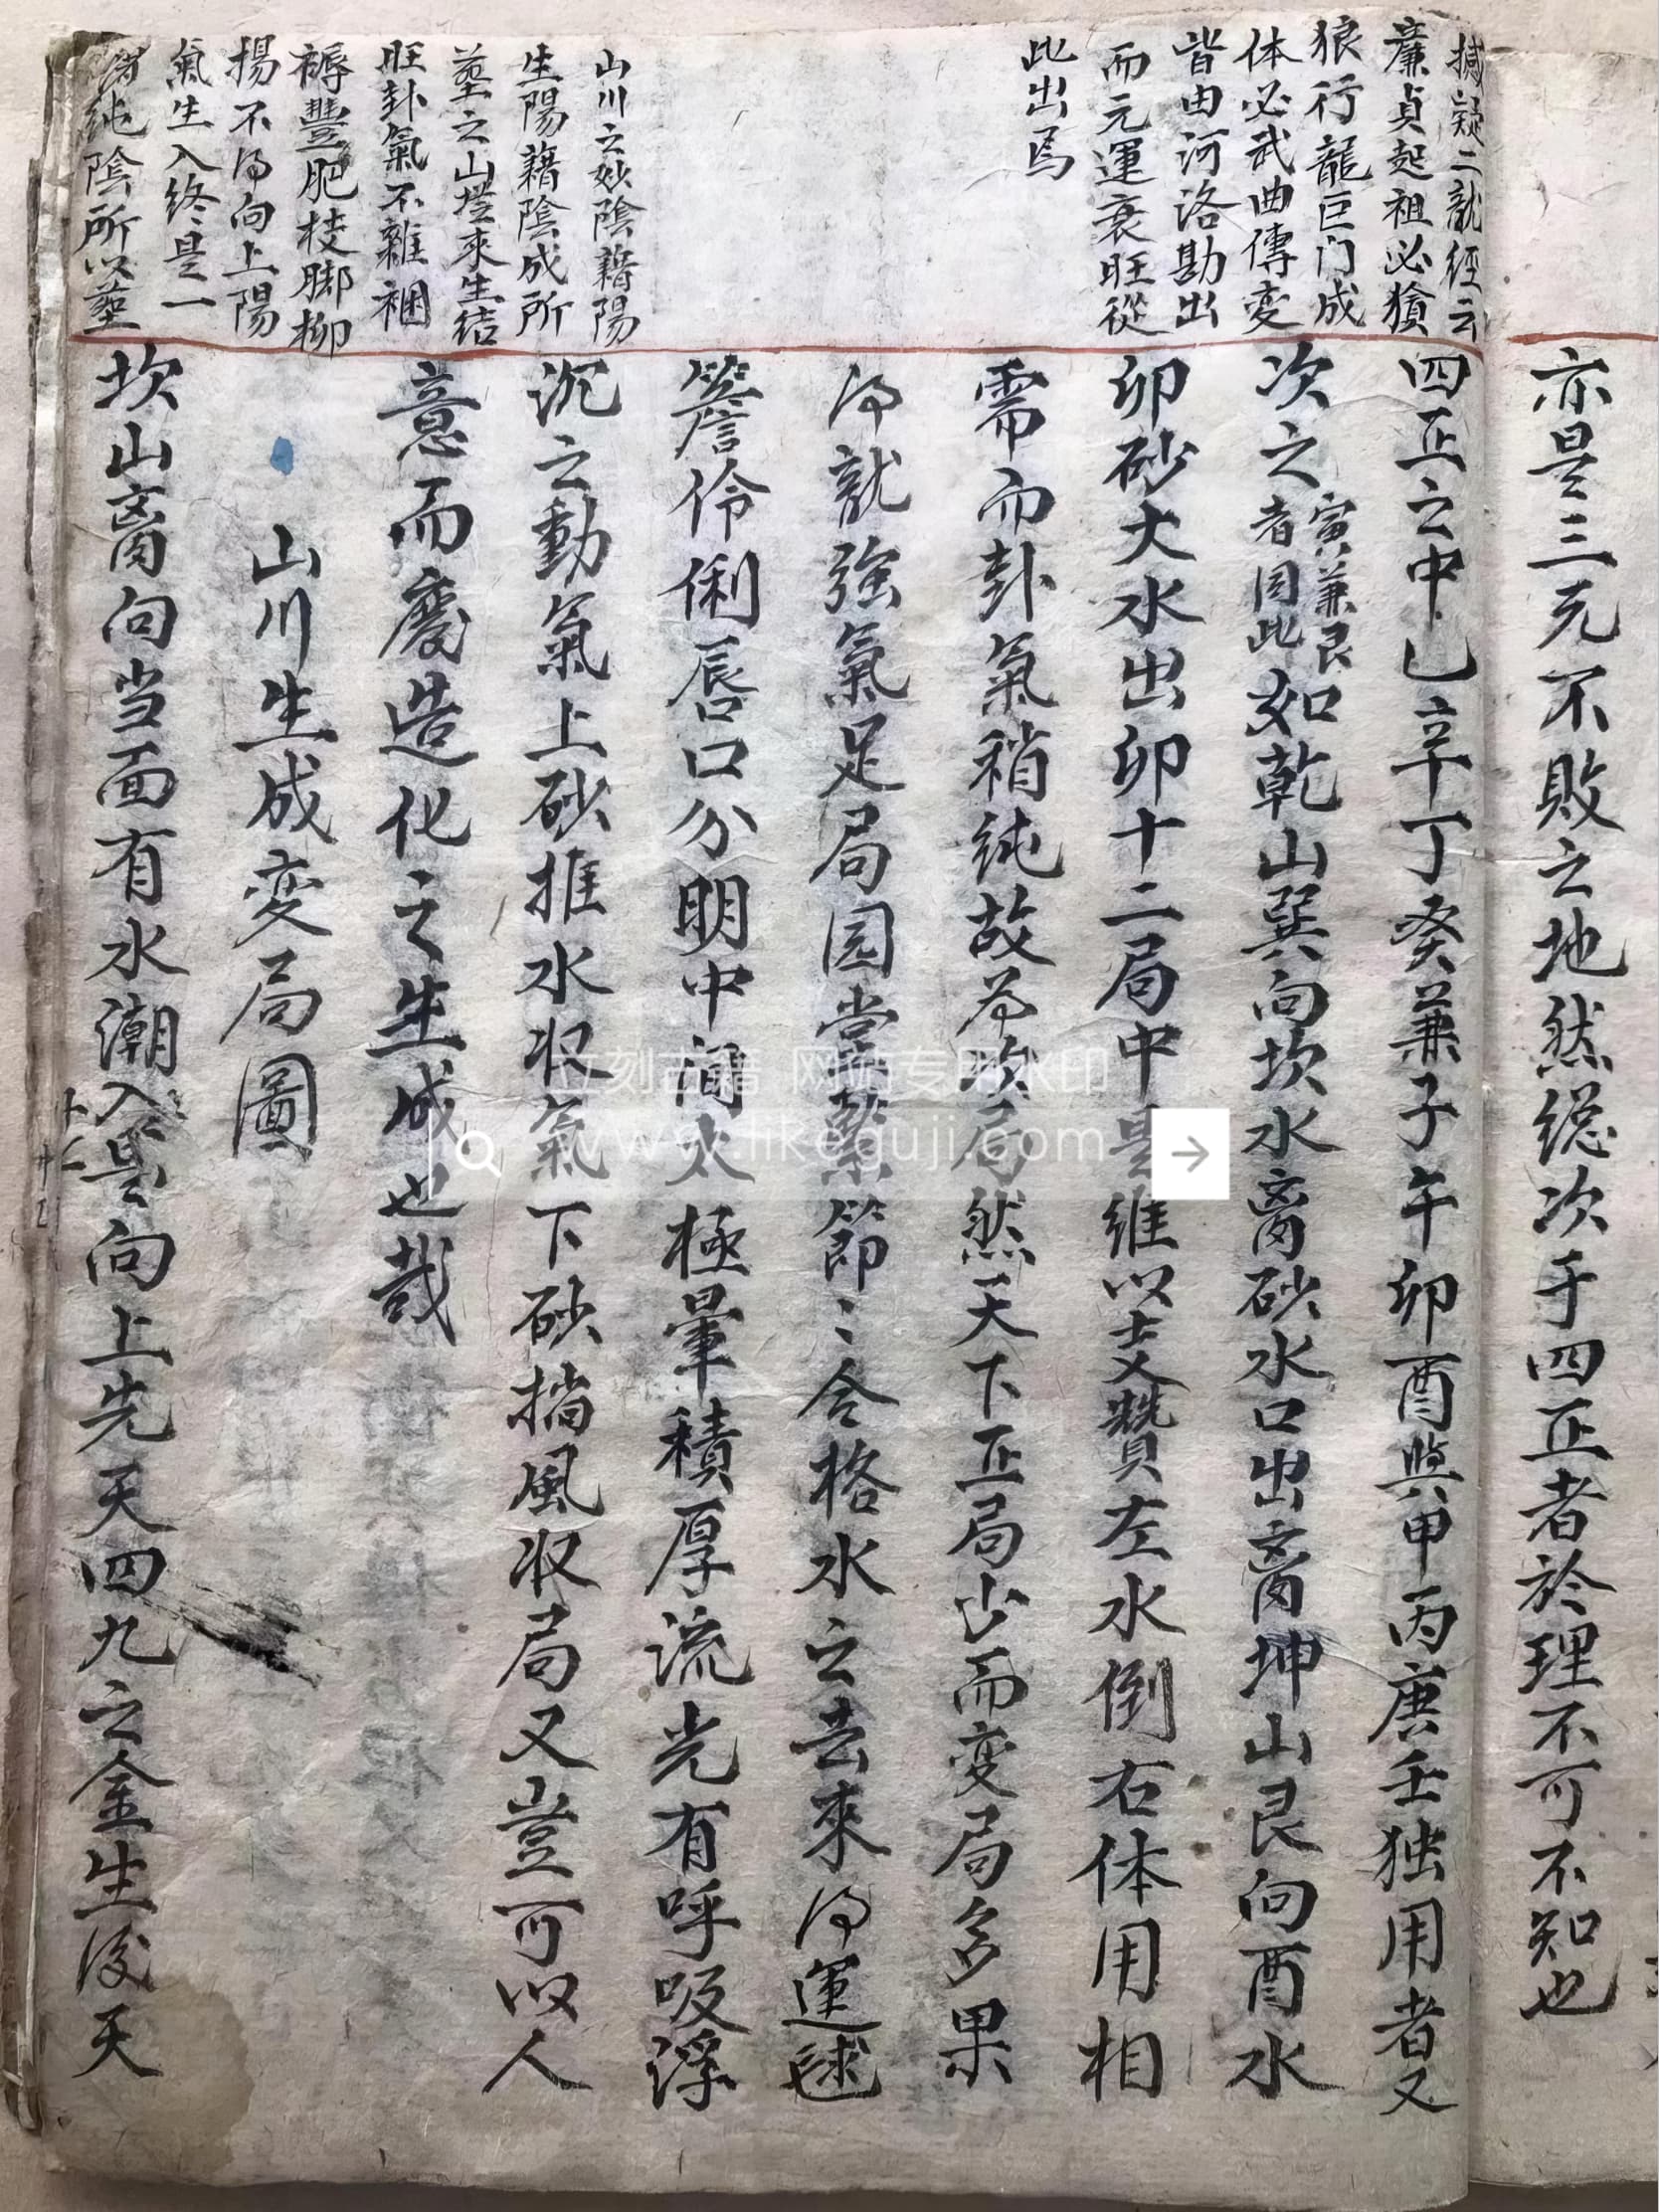 亦是三元不敗之地然總次于四正者於理不可不知也
撼疑二龍經云
廉貞起祖必獖
狼行龍巨门成
体必武曲傳变
皆由河洛勘出
而元運衰旺從
此出焉
山川之妙陰藉陽
生陽藉陰成所
塋之山塋來生結
旺卦氣不雜裀
褥豐肥枝脚柳
揚不得向上陽
氣生入終是一
純陰所以塋
四正之中乙辛丁癸蒹子午卯酉與甲丙庚壬独用者又
次之寅蒹艮者同此如乾山巽向坎水离砂水口出离坤山艮向酉水
卯砂大水出卯十二局中是維以爻贊左水倒右体用相
需而卦氣稍純故为次局然天下正局少而变局多果
得龍強氣足局园堂聚節〻合格水之去來得運毬
簷伶俐唇口分明中间太極暈積厚流光有呼吸浮
沉之動氣上砂推水収氣下砂擋風収局又豈可以人
意而廢造化之生成也哉
山川生成变局圖
坎山离向当面有水潮入是向上先天四九之金生後天
立刻古籍 网站专用水印
www.likeguji.com